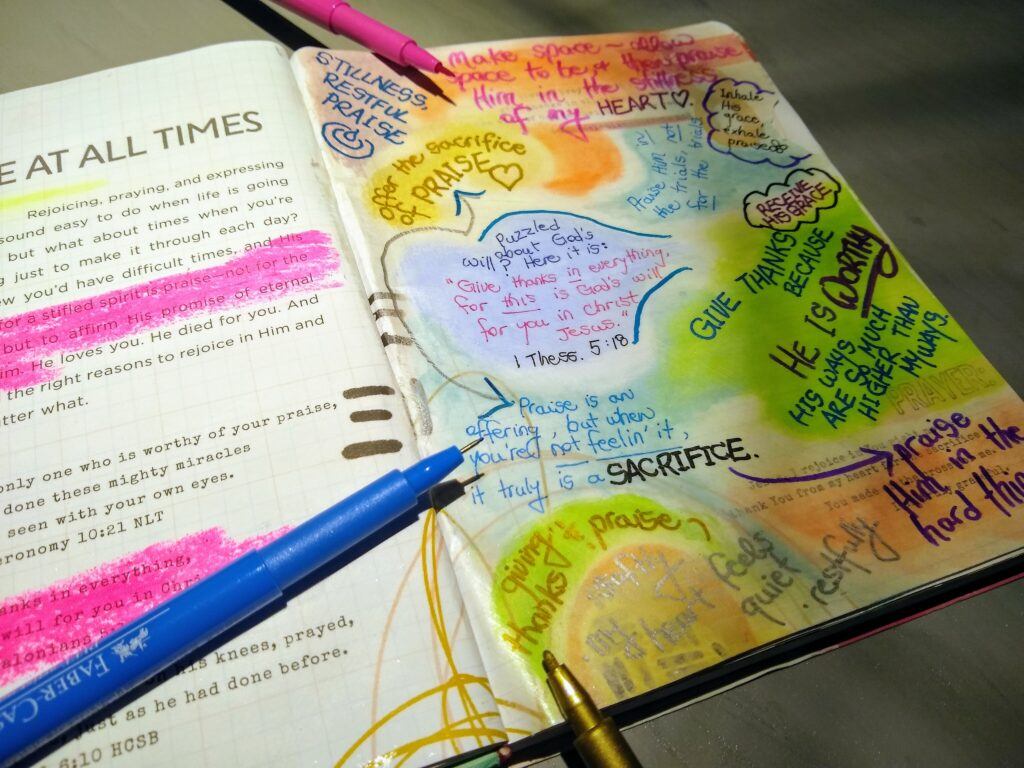 E AT ALL TIMES
Rejoicing, praying, and expressing
sound easy to do when life is going
but what about times when you're
g just to make it through each day?
ew you'd have difficult times, and His
for a stifled spirit is praise—not for the
but to affirm His promise of eternal
im. He loves you. He died for you. And
the right reasons to rejoice in Him and
tter what.
only one who is worthy of your praise,
done these mighty miracles
seen with your own eyes.
eronomy 10:21 NLT
anks in everything,
will for you in Chri
alonians 5
his knees, prayed,
just as he had done before.
6:10 HCSB
FABER-CAS
STILLNESS,
RESTFUL
PRAISE
Make space ~ allow
space to be & then praise
Him in the stillness
of my HEART♡.
Inhale
His
grace,
exhale
praise
offer the sacrifice
of PRAISE ♡
Praise Him in
the trials, not
for the trials
RECEIVE
HIS GRACE
Puzzled
about God's
will? Here it is:
"Give thanks in everything,
for this is God's will
for you in Christ
Jesus."
1 Thess. 5:18
GIVE THANKS
BECAUSE
HE IS WORTHY
HIS WAYS
ARE SO MUCH
HIGHER THAN
MY WAYS.
PRAYER:
Praise is an
offering, but when
you're not feelin' it,
it truly is a SACRIFICE.
praise
Him in the
hard thin
Thank You from my heart
You made
giving
thanks
praise
my heart
feels
quiet
restfully.